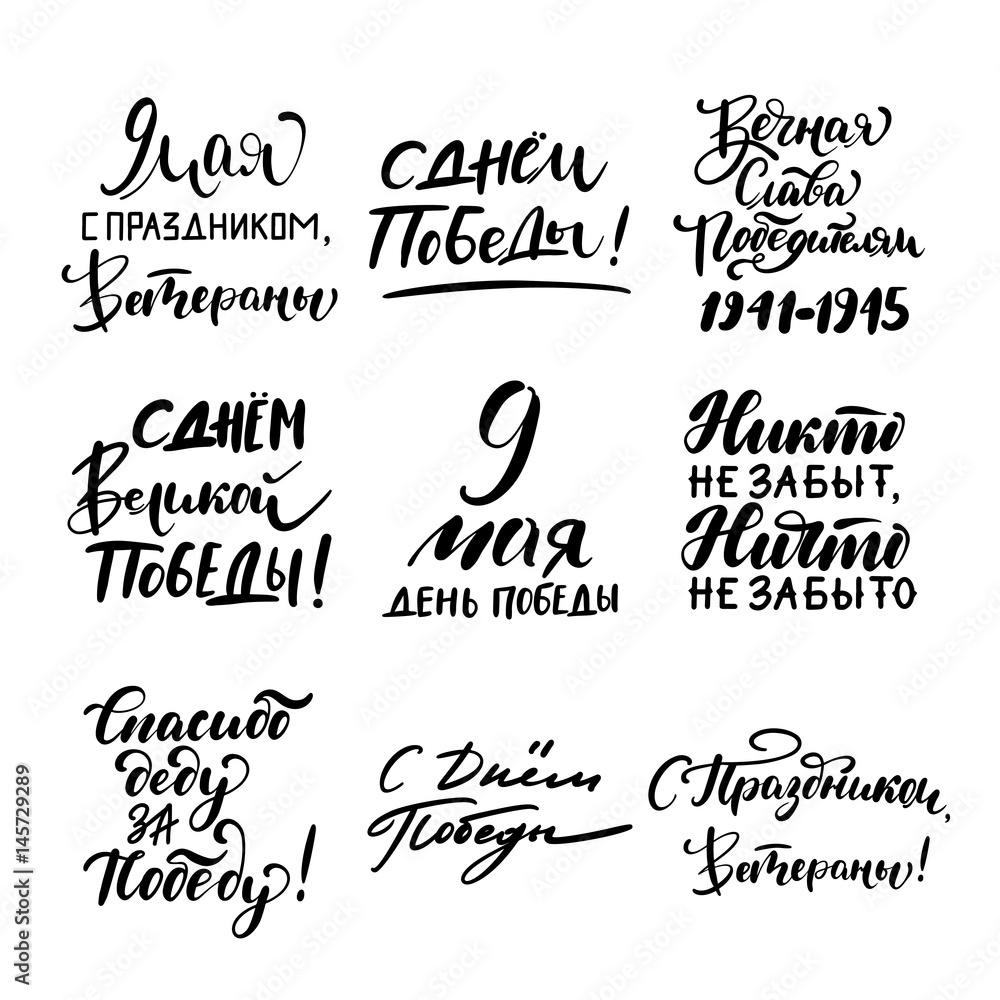 9 мая
С ПРАЗДНИКОМ,
Ветераны
С ДНЁМ
ПОБЕДЫ!
Вечная
Слава
Победителям
1941-1945
С ДНЁМ
Великой
ПОБЕДЫ!
9
мая
ДЕНЬ ПОБЕДЫ
Никто
НЕ ЗАБЫТ,
Ничто
НЕ ЗАБЫТО
Спасибо
деду
ЗА
Победу!
С Днём
Победы
С Праздником,
Ветераны!
Adobe Stock | #145729289